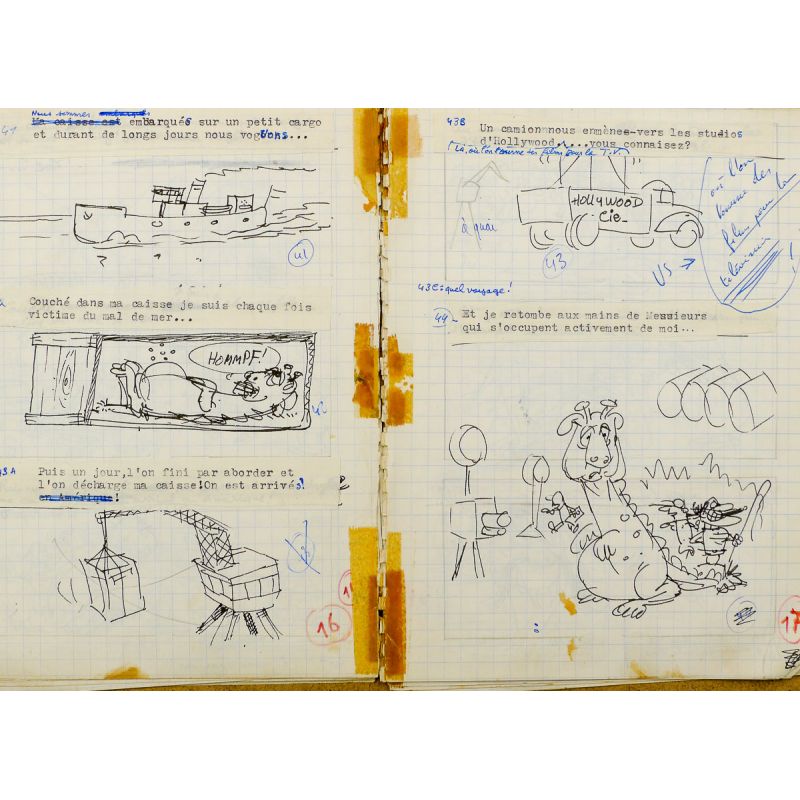 Nous sommes embarqués
Ma caisse est embarqués sur un petit cargo
41 et durant de longs jours nous voguons...
41
Couché dans ma caisse je suis chaque fois
victime du mal de mer...
HOMMPF!
42
43A Puis un jour,l'on fini par aborder et
l'on décharge ma caisse!On est arrivés!
en Amérique!
16
43B
Un camion nous enmènes-vers les studios
d'Hollywood....vous connaisez?
(Là, où l'on tourne les films pour la T.V.
HOLLYWOOD
Cie_
à quai
43
US →
où l'on
tourne des
films pour la
télévision
!
43C: quel voyage!
44 Et je retombe aux mains de Messieurs
qui s'occupent activement de moi...
17